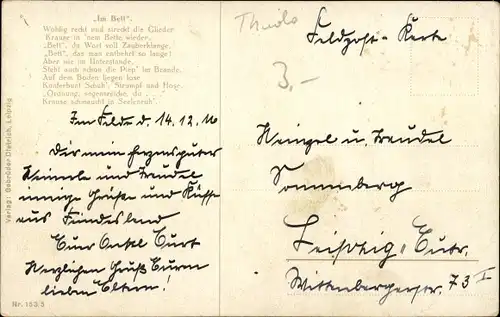 „Im Bett“.
Wohlig reckt und streckt die Glieder
Krause in 'nem Bette wieder,
„Bett“, du Wort voll Zauberklange,
„Bett“, das man entbehrt so lange!
Aber wie im Unterstande,
Steht auch schon die Piep' im Brande,
Auf dem Boden liegen lose
Kunterbunt Schuh', Strumpf und Hose,
„Ordnung, segensreiche, du“
Krause schmaucht in Seelenruh'.
Im Felde d. 14.12.16
Dir mein herzensguter
Heinerle und Traudel
innige Grüße und Küsse
aus Feindesland
Euer Onkel Curt
Herzlichen Gruß Euren
lieben Eltern!
Verlag: Gebrüder Dietrich, Leipzig
Nr. 153/5
3.-
Feldpost-Karte
Heinzel u. Traudel
Sonneberg
Leipzig-Eutr.
Wittenbergerstr. 73 I